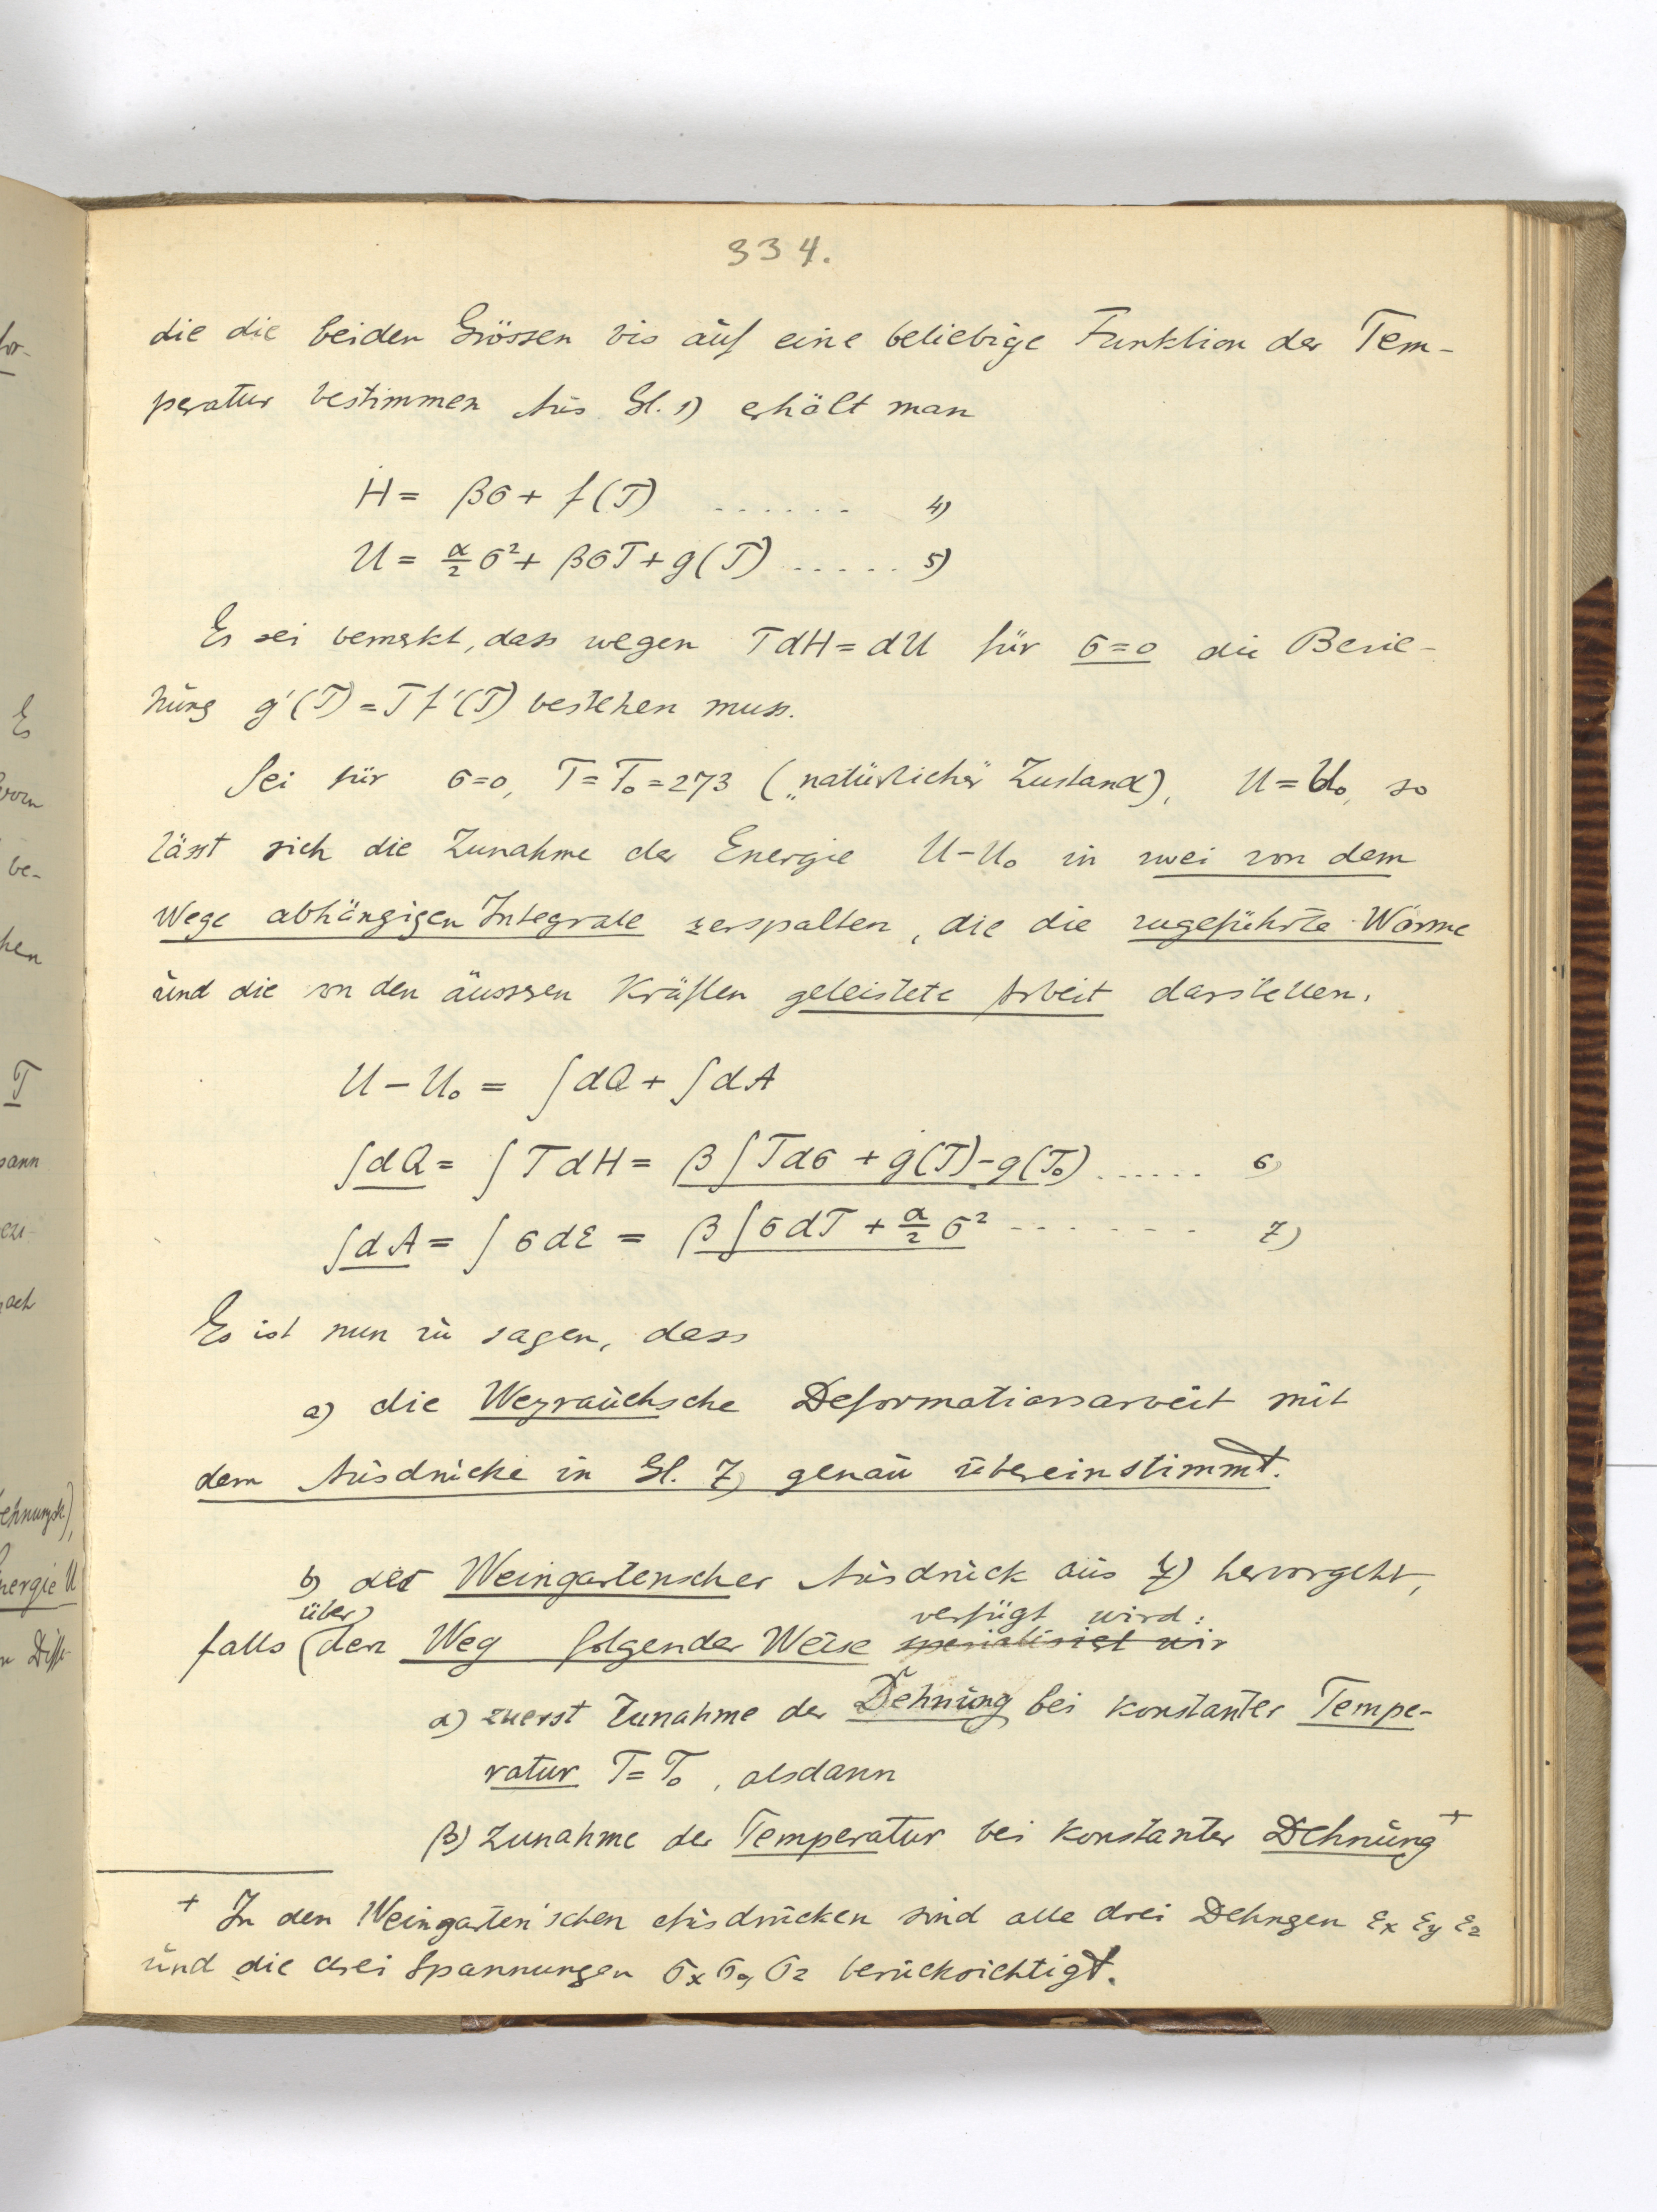 334.
die die beiden Grössen bis auf eine beliebige Funktion der Tem-
peratur bestimmen Aus Gl. 1) erhält man
H = βσ + f(T) ...... 4)
U = α/2 σ² + βσT + g(T) ...... 5)
Es sei bemerkt, dass wegen TdH = dU für σ=0 die Bezie-
hung g'(T) = Tf'(T) bestehen muss.
Sei für σ=0, T=T₀=273 („natürlicher" Zustand), U=U₀, so
lässt sich die Zunahme der Energie U-U₀ in zwei von dem
Wege abhängigen Integrale zerspalten, die die zugeführte Wärme
und die von den äusseren Kräften geleistete Arbeit darstellen.
U - U₀ = ∫dQ + ∫dA
∫dQ = ∫TdH = β∫Tdσ + g(T)-g(T₀) ...... 6)
∫dA = ∫σdε = β∫σdT + α/2 σ² ....... 7)
Es ist nun zu sagen, dass
a) die Weyrauchsche Deformationsarbeit mit
dem Ausdrucke in Gl. 7) genau übereinstimmt.
b) der Weingartenscher Ausdruck aus 7) hervorgeht,
über verfügt wird:
falls (den Weg folgender Weise spezialisiert wir
α) zuerst Zunahme der Dehnung bei konstanter Tempe-
ratur T=T₀, alsdann
β) Zunahme der Temperatur bei konstanter Dehnung+
+ In den Weingarten'schen Ausdrücken sind alle drei Dehngen εx εy εz
und die drei Spannungen σx σy σz berücksichtigt.
for-
Es
vom
be-
hen
T
sann
ezi-
nach
ehnungsk.),
nergie U
n Diff-